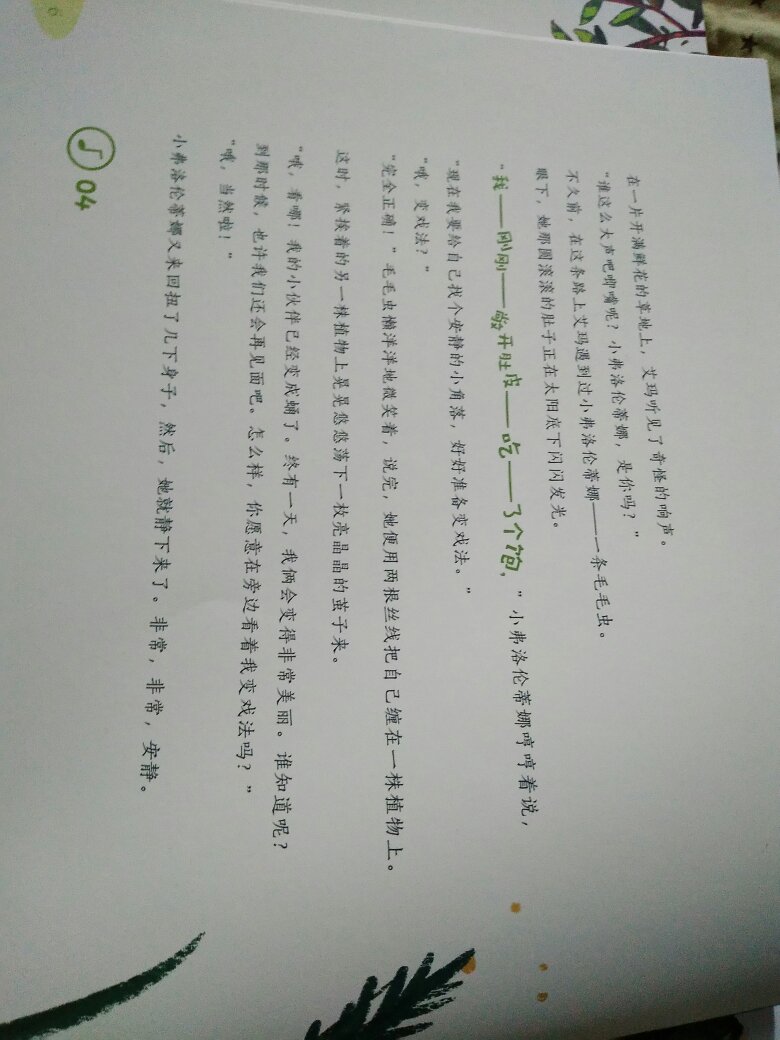 在一片开满鲜花的草地上，艾玛听见了奇怪的响声。
“谁这么大声吧唧嘴呢？小弗洛伦蒂娜，是你吗？”
不久前，在这条路上艾玛遇到过小弗洛伦蒂娜——一条毛毛虫。
眼下，她那圆滚滚的肚子正在太阳底下闪闪发光。
“我——刚刚——敞开肚皮——吃——了个饱，”小弗洛伦蒂娜哼哼着说，
“现在我要给自己找个安静的小角落，好好准备变戏法。”
“哦，变戏法？”
“完全正确！”毛毛虫懒洋洋地微笑着，说完，她便用两根丝线把自己缠在一株植物上。
这时，紧挨着的另一株植物上晃晃悠悠荡下一枚亮晶晶的茧子来。
“哦，看哪！我的小伙伴已经变成蛹了。终有一天，我俩会变得非常美丽。谁知道呢？
到那时候，也许我们还会再见面吧。怎么样，你愿意在旁边看着我变戏法吗？”
“哦，当然啦！”
小弗洛伦蒂娜又来回扭了几下身子，然后，她就静下来了。非常，非常，安静。
04